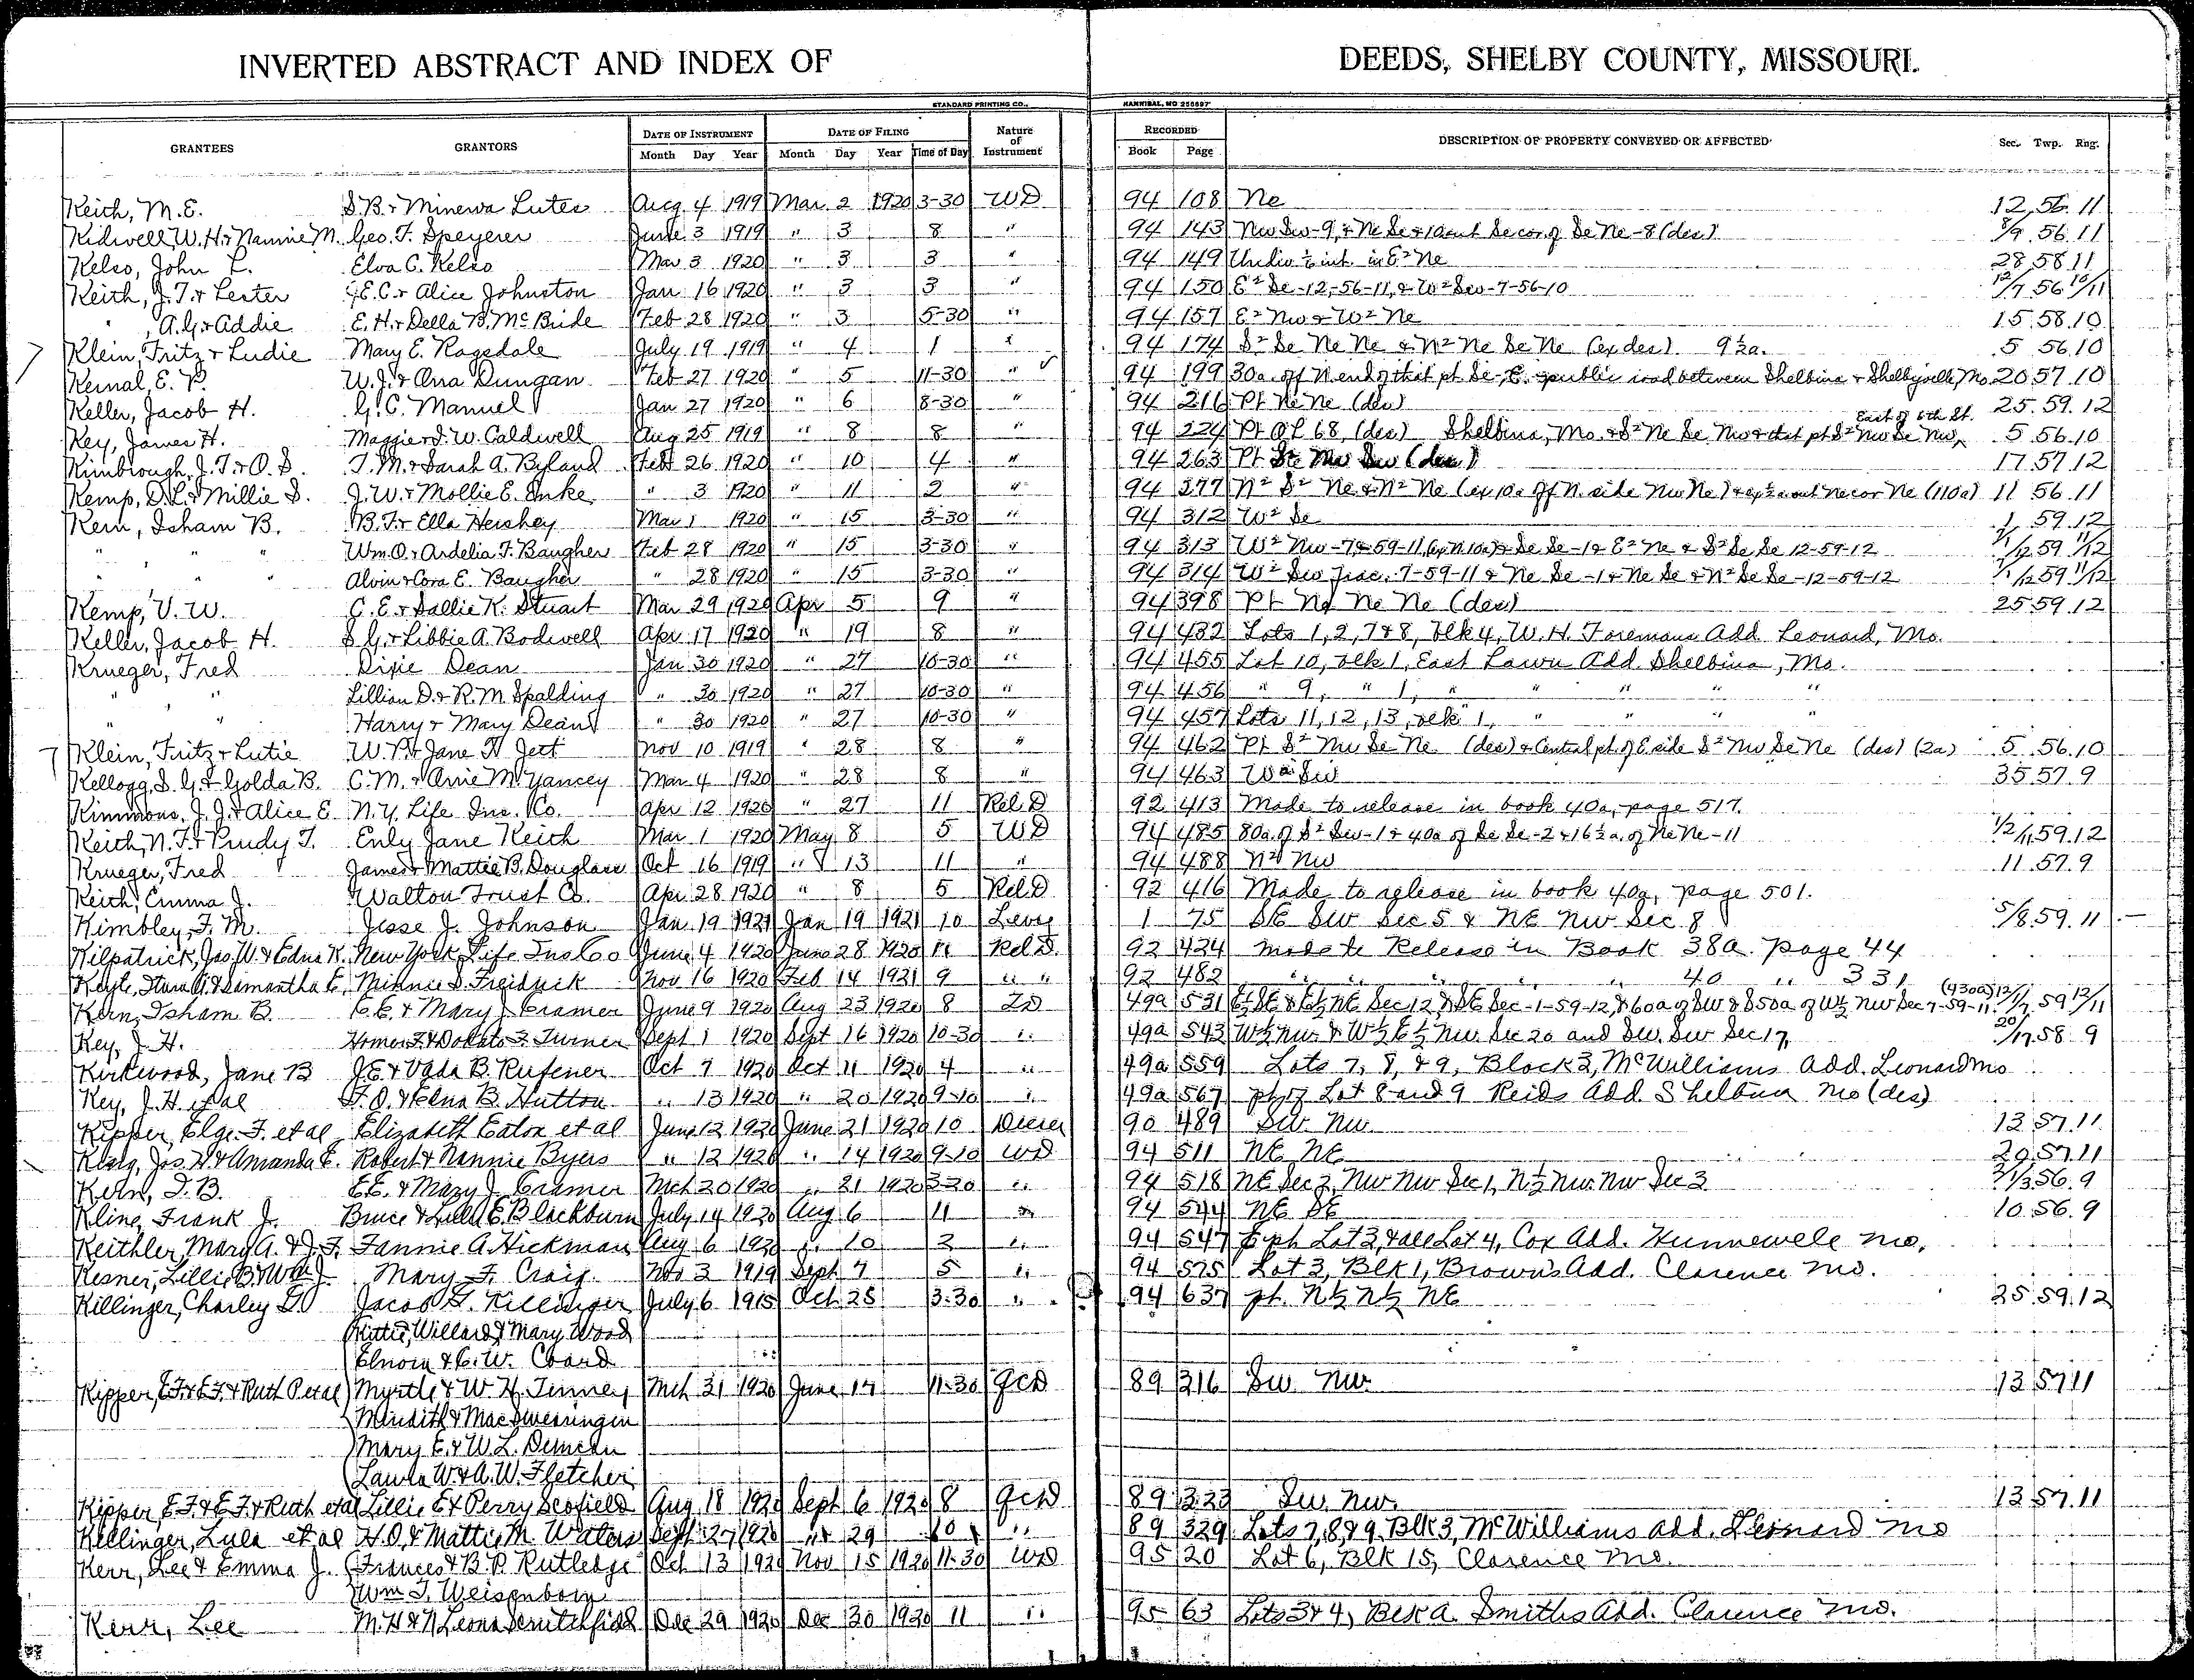 INVERTED ABSTRACT AND INDEX OF DEEDS, SHELBY COUNTY, MISSOURI.
STANDARD PRINTING CO., HANNIBAL, MO 255597
GRANTEES GRANTORS DATE OF INSTRUMENT DATE OF FILING Nature of Instrument RECORDED DESCRIPTION OF PROPERTY CONVEYED OR AFFECTED Sec. Twp. Rng.
Month Day Year Month Day Year Time of Day Book Page
Keith, M.E. S.B. & Minerva Lutes Aug 4 1919 Mar 2 1920 3-30 WD 94 108 Ne 12 56 11
Kidwell W.H. & Nannie M. Geo. F. Speyerer June 3 1919 " 3 8 " 94 143 Nw Sw-9, & Ne Se & 10a out Se cor of Se Ne-8 (des) 8/9 56 11
Kelso, John L. Elva C. Kelso Mar 3 1920 " 3 3 " 94 149 Undiv ½ int. in E² Ne 28 58 11
Keith, J.T. & Lester J.E.C. & Alice Johnston Jan 16 1920 " 3 3 " 94 150 E² Se-12-56-11, & W² Sw-7-56-10 12/7 56 10/11
" , A.G. & Addie E.H. & Della B. McBride Feb 28 1920 " 3 5-30 " 94 157 E² Nw & W² Ne 15 58 10
Klein, Fritz & Ludie Mary E. Ragsdale July 19 1919 " 4 1 " 94 174 S² Se Ne Ne & N² Ne Se Ne (ex des). 9½a. 5 56 10
Kernal, E.P. W.J. & Ona Dungan Feb 27 1920 " 5 11-30 " 94 199 30a off N end of that pt Se, E. of public road between Shelbina & Shelbyville, Mo. 20 57 10
Keller, Jacob H. G.C. Manuel Jan 27 1920 " 6 8-30 " 94 216 Pt Ne Ne (des) 25 59 12
Key, James H. Maggie & J.W. Caldwell Aug 25 1919 " 8 8 " 94 224 Pt OL 68 (des) Shelbina, Mo. & S² Ne Se Nw & that pt S² Nw Se Nw, East of 6th St. 5 56 10
Kimbrough, J.T. & O.S. T.M. & Sarah A. Byland Feb 26 1920 " 10 4 " 94 263 Pt Se Nw Sw (des) 17 57 12
Kemp, D.L. & Millie S. J.W. & Mollie E. Inke " 3 1920 " 11 2 " 94 277 N² S² Ne & N² Ne (ex 10a off N. side Nw Ne) & ex ½a out Ne cor Ne (110a) 11 56 11
Kern, Isham B. B.F. & Ella Hershey Mar 1 1920 " 15 3-30 " 94 312 W² Se 1 59 12
" " " Wm. O. & Ardelia F. Baugher Feb 28 1920 " 15 3-30 " 94 313 W² Nw-7-59-11 (ex N 10a) & Se Se-1 & E² Ne & S² Se Se 12-59-12 7/1/12 59 11/12
" " " Alvin & Cora E. Baugher " 28 1920 " 15 3-30 " 94 314 W² Sw frac. 7-59-11 & Ne Se-1 & Ne Se & N² Se Se-12-59-12 7/1/12 59 11/12
Kemp, V.W. C.E. & Sallie K. Stuart Mar 29 1920 Apr 5 9 " 94 398 Pt Nd Ne Ne (des) 25 59 12
Keller, Jacob H. S.G. & Libbie A. Bodwell Apr 17 1920 " 19 8 " 94 432 Lots 1, 2, 7 & 8, blk 4, W.H. Foremans Add Leonard, Mo.
Krueger, Fred Dixie Dean Jan 30 1920 " 27 10-30 " 94 455 Lot 10, blk 1, East Lawn Add. Shelbina, Mo.
" " Lillian D. & R.M. Spalding " 30 1920 " 27 10-30 " 94 456 " 9, " 1, " " " "
" " Harry & Mary Dean " 30 1920 " 27 10-30 " 94 457 Lots 11, 12, 13, blk 1, " " " "
Klein, Fritz & Lutie W.P. & Jane H. Jett Nov 10 1919 " 28 8 " 94 462 Pt S² Nw Se Ne (des) & Central pt. of E side S² Nw Se Ne (des) (2a) 5 56 10
Kellogg, S.G. & Golda B. C.M. & Arrie M. Yancey Mar 4 1920 " 28 8 " 94 463 W² Sw 35 57 9
Kimmons, J.J. & Alice E N.Y. Life Ins. Co. Apr 12 1920 " 27 11 Rel D 92 413 Made to release in book 40a, page 517.
Keith, N.F. & Prudy T. Enly Jane Keith Mar 1 1920 May 8 5 WD 94 485 80a of S² Sw-1 & 40a of Se Se-2 & 16½a. of Ne Ne-11 1/2/11 59 12
Krueger, Fred James & Mattie B. Douglass Oct 16 1919 " 13 11 " 94 488 N² Nw 11 57 9
Keith, Emma J. Walton Trust Co. Apr 28 1920 " 8 5 Rel D 92 416 Made to release in book 40a, page 501.
Kimbley, F.M. Jesse J. Johnson Jan 19 1921 Jan 19 1921 10 Levy 1 75 SE SW Sec 5 & NE NW Sec 8 5/8 59 11
Kilpatrick, Jas. W. & Edna K. New York Life Ins Co June 4 1920 June 28 1920 11 Rel D. 92 424 made to Release in Book 38a page 44
& Samantha E. Minnie S. Freidrick Nov 16 1920 Feb 14 1921 9 " " 92 482 " " " " " 40 " 331
Kern, Isham B. E.E. & Mary J. Cramer June 9 1920 Aug 23 1920 8 49a 531 E½ SE & E½ NE Sec 12, & SE Sec-1-59-12, & 60a of SW & S 50a of W½ NW Sec 7-59-11. (430a) 12/1/7 59 12/11
Key, J.H. Turner Sept 1 1920 Sept 16 1920 10-30 " 49a 543 W½ NW. & W½ E½ NW. Sec 20 and SW. SW Sec 17, 20/17 58 9
Kirkwood, Jane B J.E. & Vada B. Rufener Oct 7 1920 Oct 11 1920 4 " 49a 559 Lots 7, 8, & 9, Block 3, McWilliams Add. Leonard Mo
Key, J.H. et al F.O. & Edna B. Hutton " 13 1920 " 20 1920 9-10 " 49a 567 pt of Lot 8 and 9 Reids Add. Shelbina Mo (des)
Kipper, Elge. F. et al Elizabeth Eaton et al June 12 1920 June 21 1920 10 Decree 90 489 SW. NW. 13 57 11
Jos. H. & Amanda E. Robert & Nannie Byers " 12 1920 " 14 1920 9-10 WD 94 511 NE NE 29 57 11
Kern, I.B. E.E. & Mary J. Cramer Mch 20 1920 " 21 1920 3-30 " 94 518 NE Sec 2, NW NW Sec 1, N½ NW. NW Sec 3 2/1/3 56 9
Kline, Frank J. Bruce & Lulu E. Blackburn July 14 1920 Aug 6 11 " 94 544 NE SE 10 56 9
Keithler, Mary A. & J.F. Fannie A. Hickman Aug 6 1920 " 10 2 " 94 547 E pt Lot 3, & all Lot 4, Cox Add. Hunnewell Mo.
Kesner, Lillie B. & Wm. J. Mary F. Craig Nov 3 1919 Sept 7 5 " 94 575 Lot 3, Blk 1, Brown's Add. Clarence Mo.
Killinger, Charley G. Jacob G. Killinger July 6 1915 Oct 25 3-30 " 94 637 pt. N½ N½ NE 25 59 12
Kittie, Willard & Mary Wood
& C.W. Coard
Kipper, E.F. & E.F. & Ruth P. et al Myrtle & W.H. Tinney Mch 31 1920 June 17 11-30 QCD 89 316 SW NW. 13 57 11
Meridith & Mae Swearingen
Mary E. & W.L. Duncan
Laura W. & A.W. Fletcher
Kipper E.F. & E.F. & Ruth et al Lillie E & Perry Scofield Aug 18 1920 Sept 6 1920 8 QCD 89 323 SW. NW. 13 57 11
Killinger, Lula et al H.O. & Mattie M. Waters Sept 27 1920 " 29 10 " 89 329 Lots 7, 8 & 9, Blk 3, McWilliams Add. Leonard Mo
Kerr, Lee & Emma J. Frances & B.P. Rutledge Oct 13 1920 Nov 15 1920 11-30 WD 95 20 Lot 6, Blk 15, Clarence Mo.
Wm. J. Weisenborn
Kerr, Lee M.H. & N Leona Scrutchfield Dec 29 1920 Dec 30 1920 11 " 95 63 Lots 3 & 4, Blk A. Smiths Add. Clarence Mo.